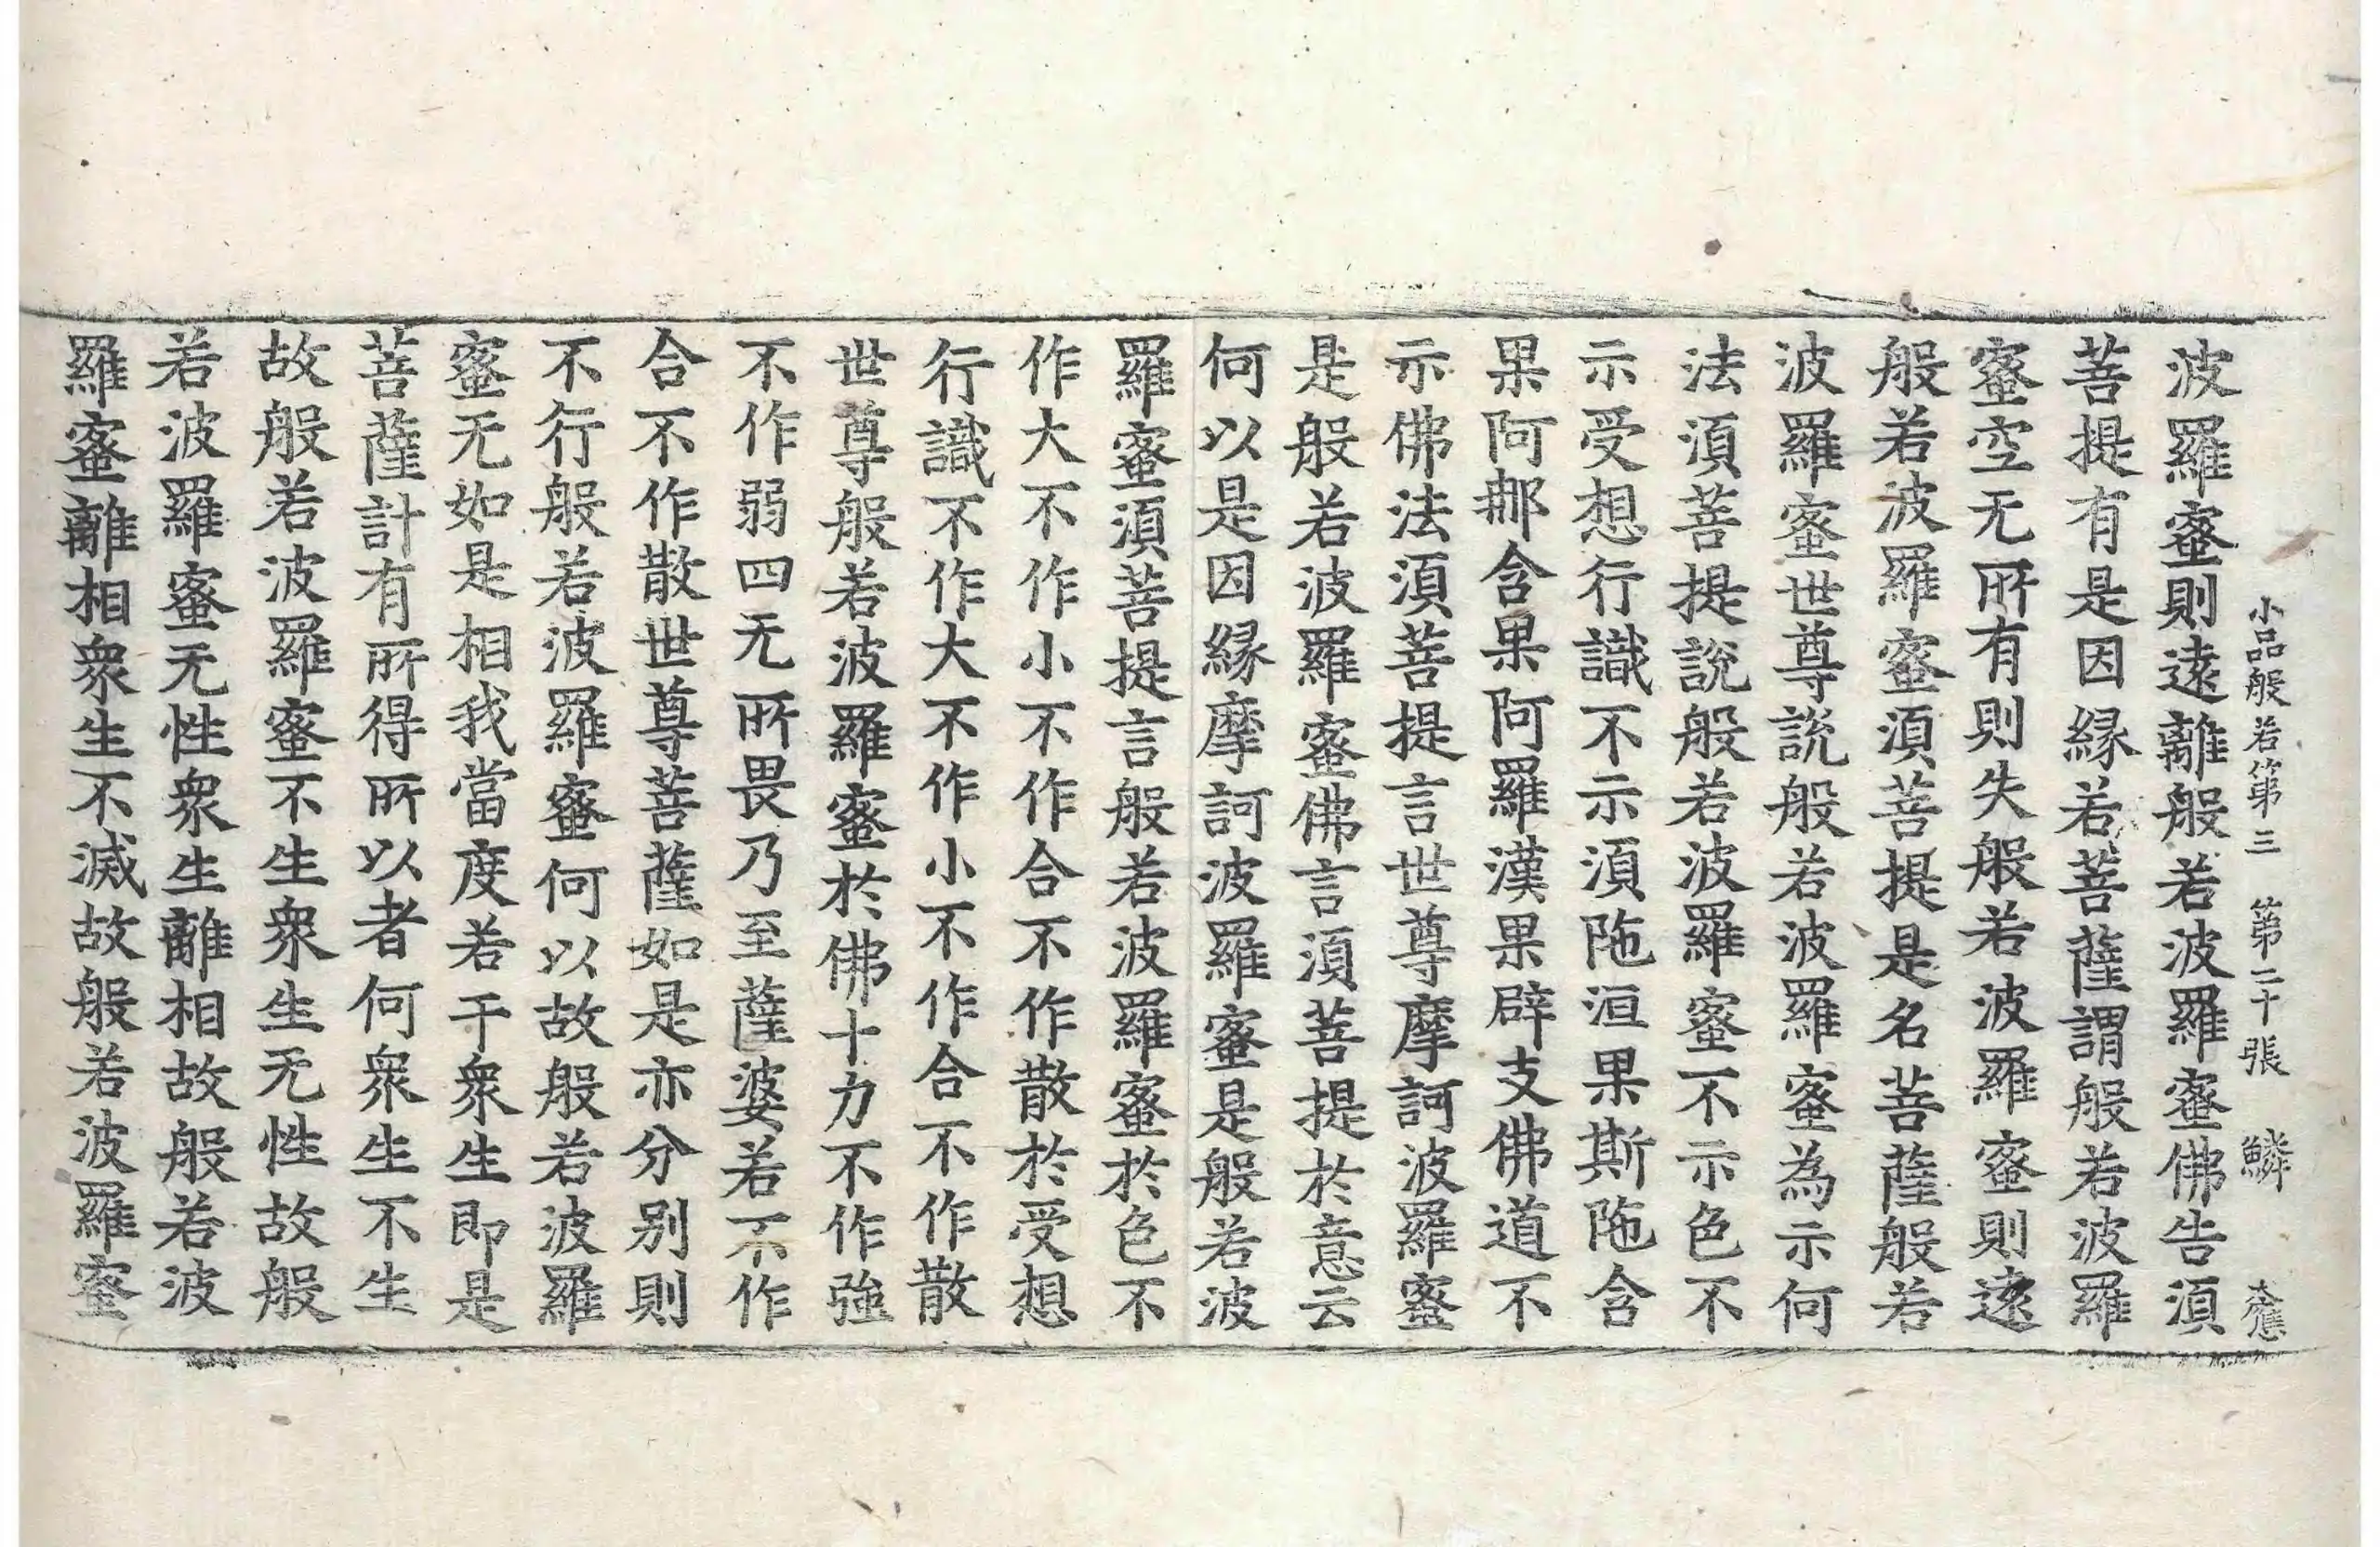 小品般若第三 第二十張 鱗 大應
波羅蜜則遠離般若波羅蜜佛告須
菩提有是因緣若菩薩謂般若波羅
蜜空无所有則失般若波羅蜜則遠
般若波羅蜜須菩提是名菩薩般若
波羅蜜世尊說般若波羅蜜為示何
法須菩提說般若波羅蜜不示色不
示受想行識不示須陁洹果斯陁含
果阿那含果阿羅漢果辟支佛道不
示佛法須菩提言世尊摩訶波羅蜜
是般若波羅蜜佛言須菩提於意云
何以是因緣摩訶波羅蜜是般若波
羅蜜須菩提言般若波羅蜜於色不
作大不作小不作合不作散於受想
行識不作大不作小不作合不作散
世尊般若波羅蜜於佛十力不作強
不作弱四无所畏乃至薩婆若不作
合不作散世尊菩薩如是亦分別則
不行般若波羅蜜何以故般若波羅
蜜无如是相我當度若干衆生即是
菩薩計有所得所以者何衆生不生
故般若波羅蜜不生衆生无性故般
若波羅蜜无性衆生離相故般若波
羅蜜離相衆生不滅故般若波羅蜜